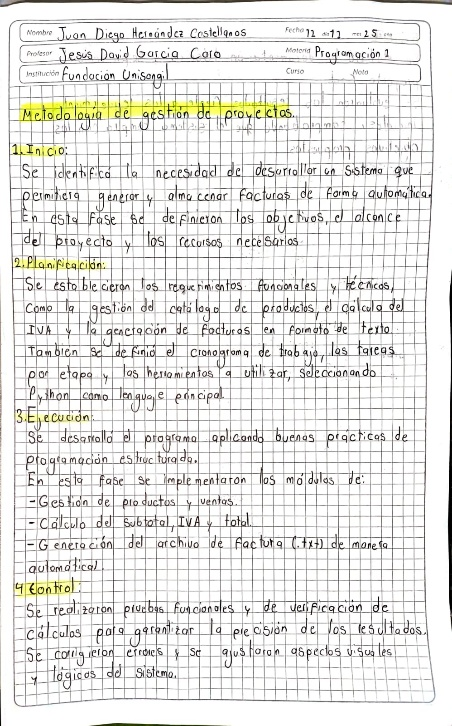 Nombre Juan Diego Hernández Castellanos Fecha 12 - 11 - 25
Profesor Jesús David Garcia Caro Materia Programación 1
Institución Fundación Unisangil Curso Nota
Metodología de gestión de proyectos.
1. Inicio:
Se identificó la necesidad de desarrollar un sistema que
permitiera generar y almacenar facturas de forma automática.
En esta fase se definieron los objetivos, el alcance
del proyecto y los recursos necesarios.
2. Planificación:
Se establecieron los requerimientos funcionales y técnicos,
como la gestión del catálogo de productos, el cálculo del
IVA y la generación de facturas en formato de texto.
También se definió el cronograma de trabajo, las tareas
por etapa y las herramientas a utilizar, seleccionando
Python como lenguaje principal.
3. Ejecución:
Se desarrolló el programa aplicando buenas prácticas de
programación estructurada.
En esta fase se implementaron los módulos de:
- Gestión de productos y ventas.
- Cálculo del subtotal, IVA y total.
- Generación del archivo de factura (.txt) de manera
automática.
4. Control:
Se realizaron pruebas funcionales y de verificación de
cálculos para garantizar la precisión de los resultados.
Se corrigieron errores y se ajustaron aspectos visuales
y lógicos del sistema.